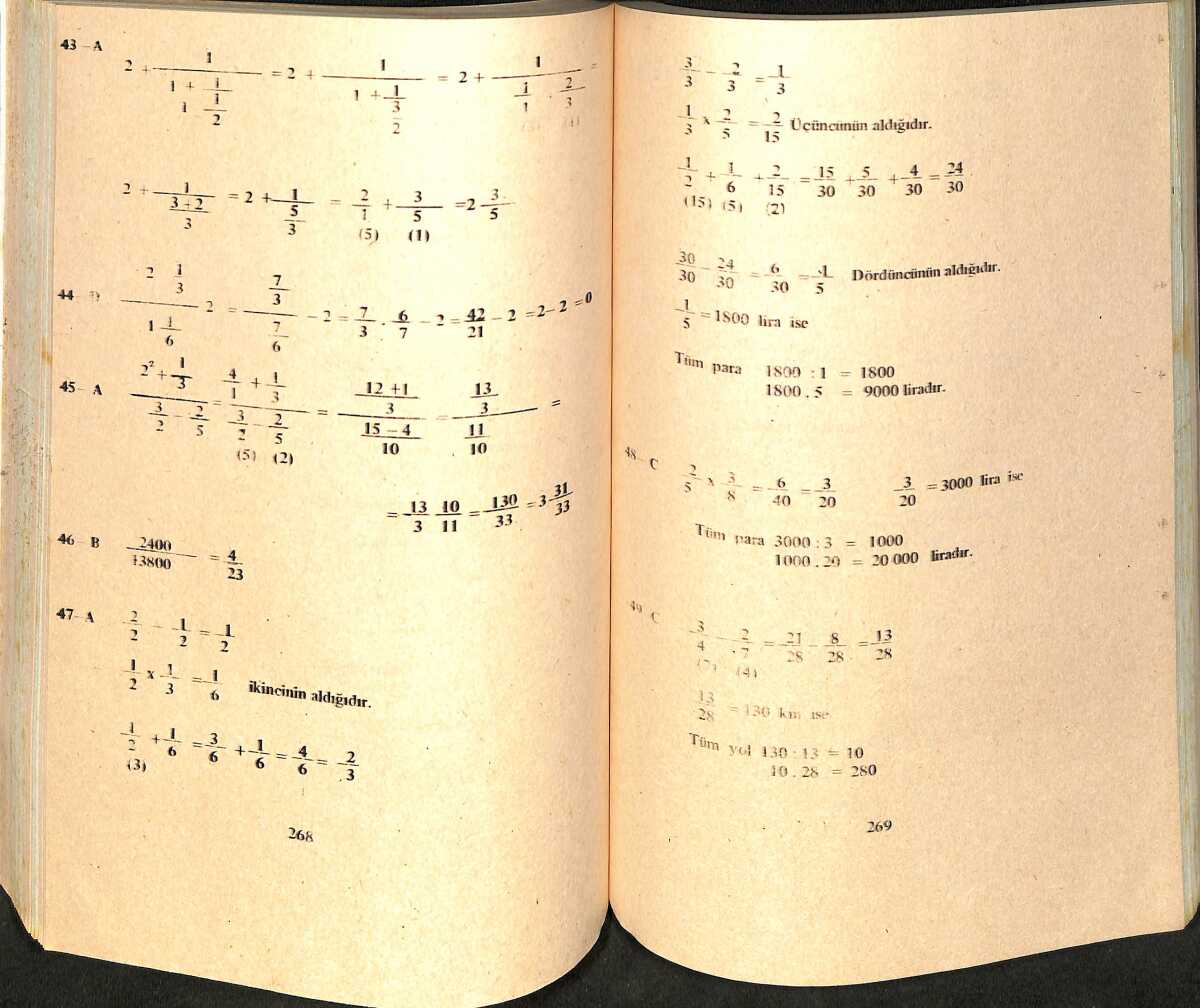 43 – A
2 + 1/(1 + 1/(1 1/2)) = 2 + 1/(1 + 1/(3/2)) = 2 + 1/(1/1 · 2/3) =
2 + 1/((3+2)/3) = 2 + 1/(5/3) = 2/1 + 3/5 = 2 3/5
(5) (1)
44 –
(2 1/3)/(1 1/6) 2 = (7/3)/(7/6) – 2 = 7/3 . 6/7 – 2 = 42/21 – 2 = 2– 2 = 0
45– A
(2² + 1/3)/(3/2 – 2/5) = (4/1 + 1/3)/(3/2 – 2/5) = ((12 +1)/3)/((15 – 4)/10) = (13/3)/(11/10) =
(5) (2)
= 13/3 10/11 = 130/33 = 3 31/33
46 – B
2400/13800 = 4/23
47– A
2/2 – 1/2 = 1/2
1/2 x 1/3 = 1/6 ikincinin aldığıdır.
1/2 + 1/6 = 3/6 + 1/6 = 4/6 = 2/3
(3)
268
3/3 – 2/3 = 1/3
1/3 x 2/5 = 2/15 Üçüncünün aldığıdır.
1/2 + 1/6 + 2/15 = 15/30 + 5/30 + 4/30 = 24/30
(15) (5) (2)
30/30 – 24/30 = 6/30 = 1/5 Dördüncünün aldığıdır.
1/5 = 1800 lira ise
Tüm para 1800 : 1 = 1800
1800 . 5 = 9000 liradır.
48– C
2/5 x 3/8 = 6/40 = 3/20 3/20 = 3000 lira ise
Tüm para 3000 : 3 = 1000
1000 . 20 = 20 000 liradır.
49 C
3/4 – 2/7 = 21/28 – 8/28 = 13/28
(7) (4)
13/28 = 130 km ise
Tüm yol 130 : 13 = 10
10 . 28 = 280
269